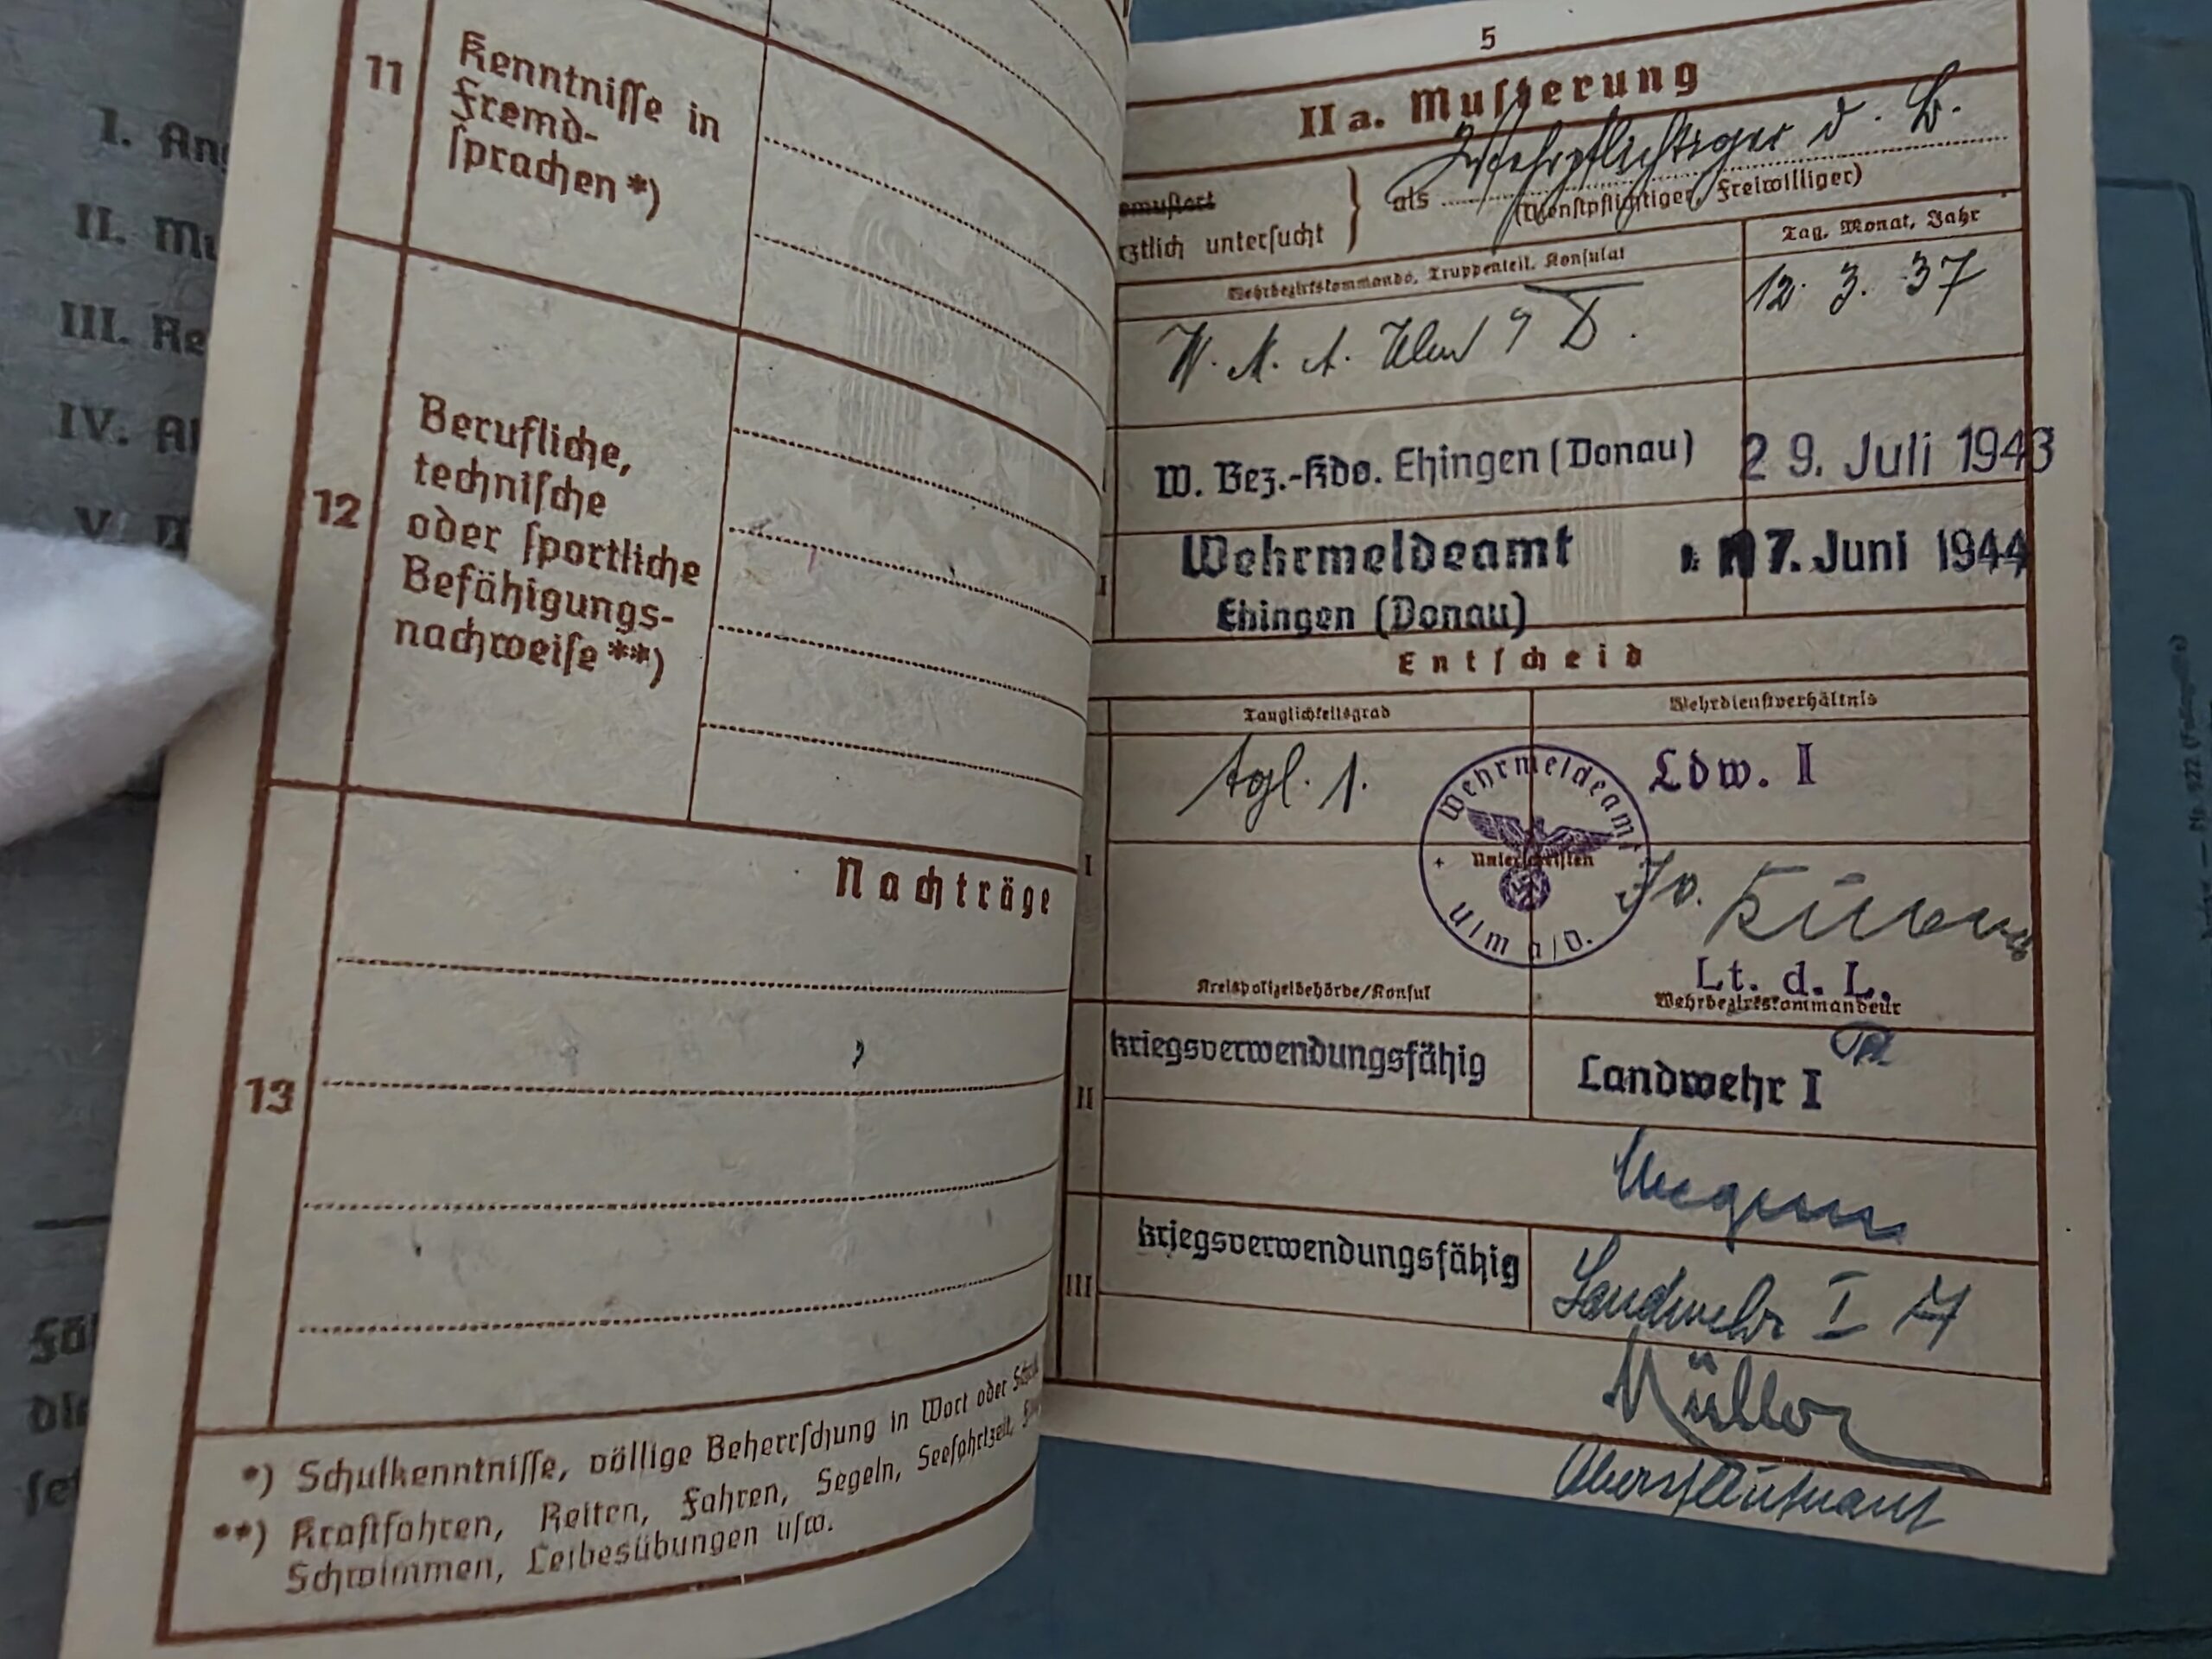 I. An
II. Mu
III. Re
IV. Al
V.
11
Kenntniſſe in
Fremd-
ſprachen *)
12
Berufliche,
techniſche
oder ſportliche
Befähigungs-
nachweiſe **)
Nachträge
13
*) Schulkenntniſſe, völlige Beherrſchung in Wort oder
**) Kraftfahren, Reiten, Fahren, Segeln, Seefahrtzeit,
Schwimmen, Leibesübungen uſw.
5
II a. Muſterung
emuſtert
rztlich unterſucht
als Wehrpflichtiger d. B.
(Dienſtpflichtiger, Freiwilliger)
Wehrbezirkskommando, Truppenteil, Konſulat
Tag, Monat, Jahr
W. M. A. Ulm
12. 3. 37
W. Bez.-Kdo. Ehingen (Donau) 29. Juli 1943
Wehrmeldeamt
Ehingen (Donau)
7. Juni 1944
Entſcheid
Tauglichkeitsgrad
Wehrdienſtverhältnis
tgl. 1.
Ldw. I
Wehrmeldeamt
Ulm a/D.
Unterſchriften
I
Lt. d. L.
Kreispolizeibehörde/Konſul
Wehrbezirkskommandeur
kriegsverwendungsfähig
Landwehr I
II
kriegsverwendungsfähig
Landwehr I
III
Müller
Oberſtleutnant